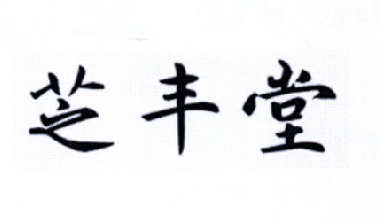 芝丰堂